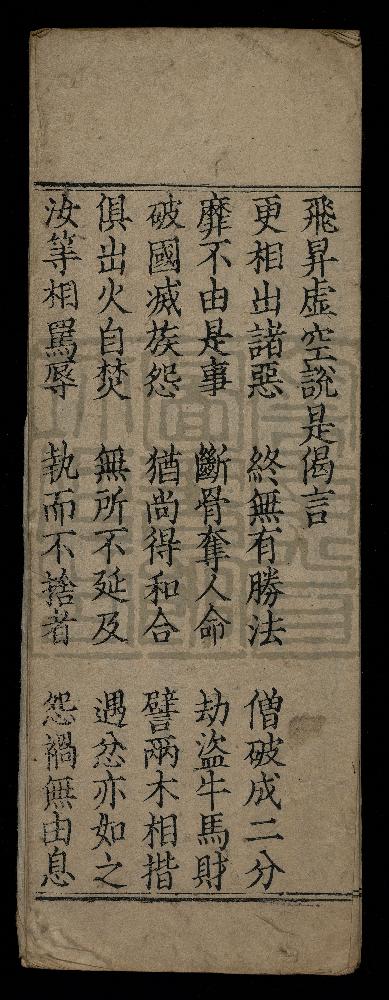 飛昇虛空說是偈言
更相出諸惡 終無有勝法 僧破成二分
靡不由是事 斷骨奪人命 劫盜牛馬財
破國滅族怨 猶尚得和合 譬兩木相揩
俱出火自焚 無所不延及 遇忿亦如之
汝等相罵辱 執而不捨者 怨禍無由息